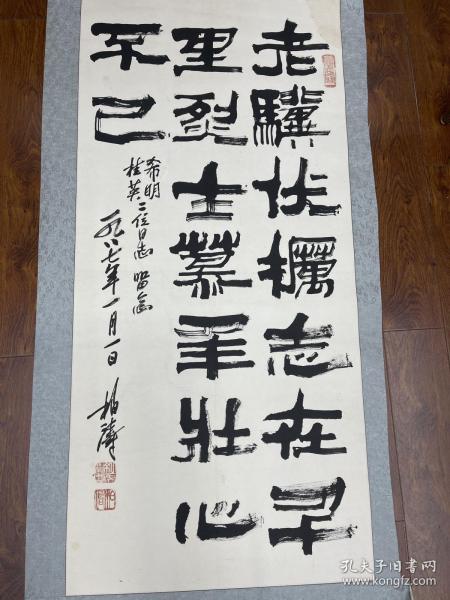 老驥伏櫪志在千
里烈士暮年壯心
不已
希明
桂英二位同志留念
一九八七年一月一日
孔夫子旧书网
www.kongfz.com